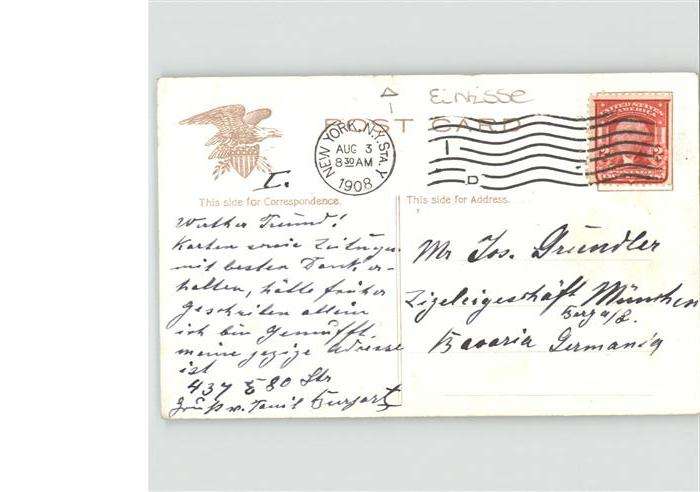 EINRISSE
POST CARD
NEW YORK, N.Y. STA. Y
AUG 3
8 30 AM
1908
D
UNITED STATES
OF AMERICA
I.
This side for Correspondence.
This side for Address.
Werther Freund!
Karten sowie Zeitungen
mit besten Dank er-
halten, hätte früher
geschriben allein
ich bin
meine jezige Adresse
ist
437 E 80 Str
Gruß v.
Mr Jos. Gründler
Zigeleigeschäft München
Berg a/L.
Bavaria Germaniy